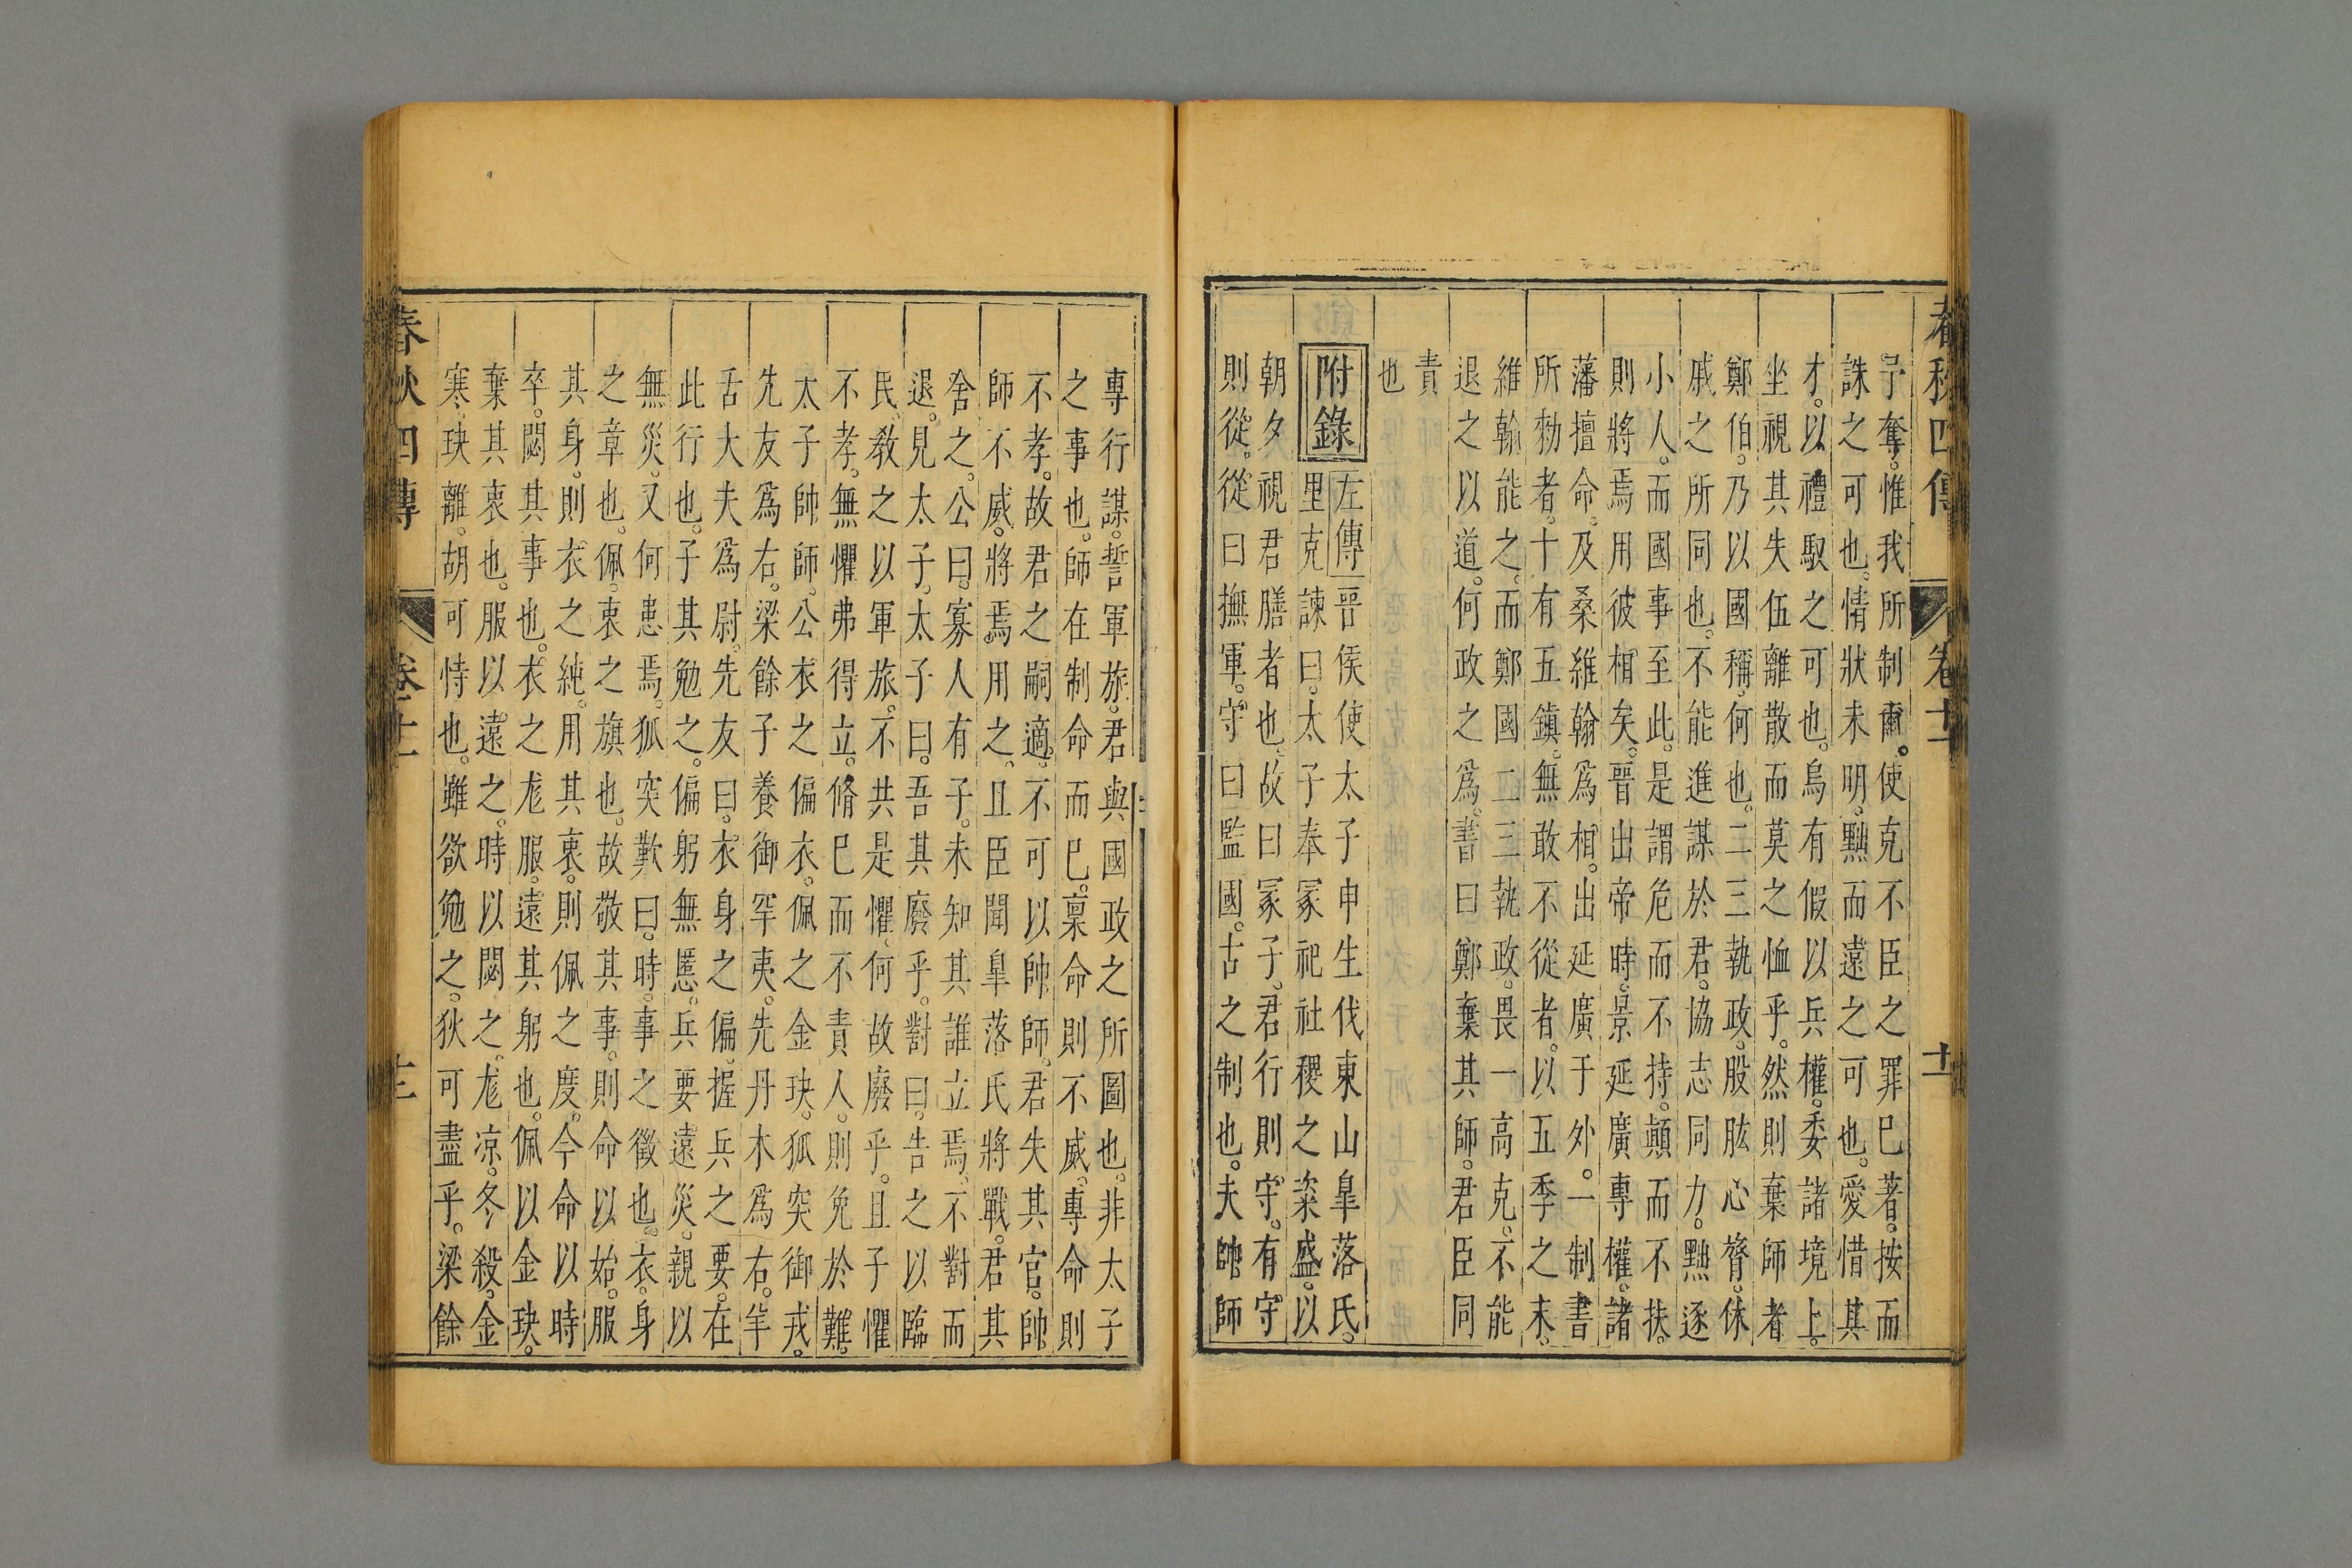 春秋四傳 卷十一 十一
予奪。惟我所制爾。使克不臣之罪已著。按而
誅之可也。情狀未明。黜而遠之可也。愛惜其
才。以禮馭之可也。烏有假以兵權。委諸境上。
坐視其失伍離散而莫之恤乎。然則棄師者
鄭伯。乃以國稱。何也。二三執政。股肱心膂。休
戚之所同也。不能進謀於君。協志同力。黜逐
小人。而國事至此。是謂危而不持。顛而不扶。
則將焉用彼相矣。晉出帝時。景延廣專權。諸
藩擅命。及桑維翰爲相。出延廣于外。一制書
所勑者。十有五鎮。無敢不從者。以五季之末。
維翰能之。而鄭國二三執政。畏一高克。不能
退之以道。何政之爲。書曰鄭棄其師。君臣同
責
也
附錄 左傳 晉侯使太子申生伐東山皐落氏。
里克諫曰。太子奉冢祀社稷之粢盛。以
朝夕視君膳者也。故曰冢子。君行則守。有守
則從。從曰撫軍。守曰監國。古之制也。夫帥師
專行謀。誓軍旅。君與國政之所圖也。非太子
之事也。師在制命而已。稟命則不威。專命則
不孝。故君之嗣適。不可以帥師。君失其官。帥
師不威。將焉用之。且臣聞皐落氏將戰。君其
舍之。公曰。寡人有子。未知其誰立焉。不對而
退。見太子。太子曰。吾其廢乎。對曰。告之以臨
民。教之以軍旅。不共是懼。何故廢乎。且子懼
不孝。無懼弗得立。脩已而不責人。則免於難。
太子帥師。公衣之偏衣。佩之金玦。狐突御戎。
先友爲右。梁餘子養御罕夷。先丹木爲右。羊
舌大夫爲尉。先友曰。衣身之偏。握兵之要。在
此行也。子其勉之。偏躬無慝。兵要遠災。親以
無災。又何患焉。狐突歎曰。時。事之徵也。衣。身
之章也。佩。衷之旗也。故敬其事。則命以始。服
其身。則衣之純。用其衷。則佩之度。今命以時
卒。閟其事也。衣之尨服。遠其躬也。佩以金玦。
棄其衷也。服以遠之。時以閟之。尨凉。冬殺。金
寒。玦離。胡可恃也。雖欲勉之。狄可盡乎。梁餘
春秋四傳 卷十一 十二